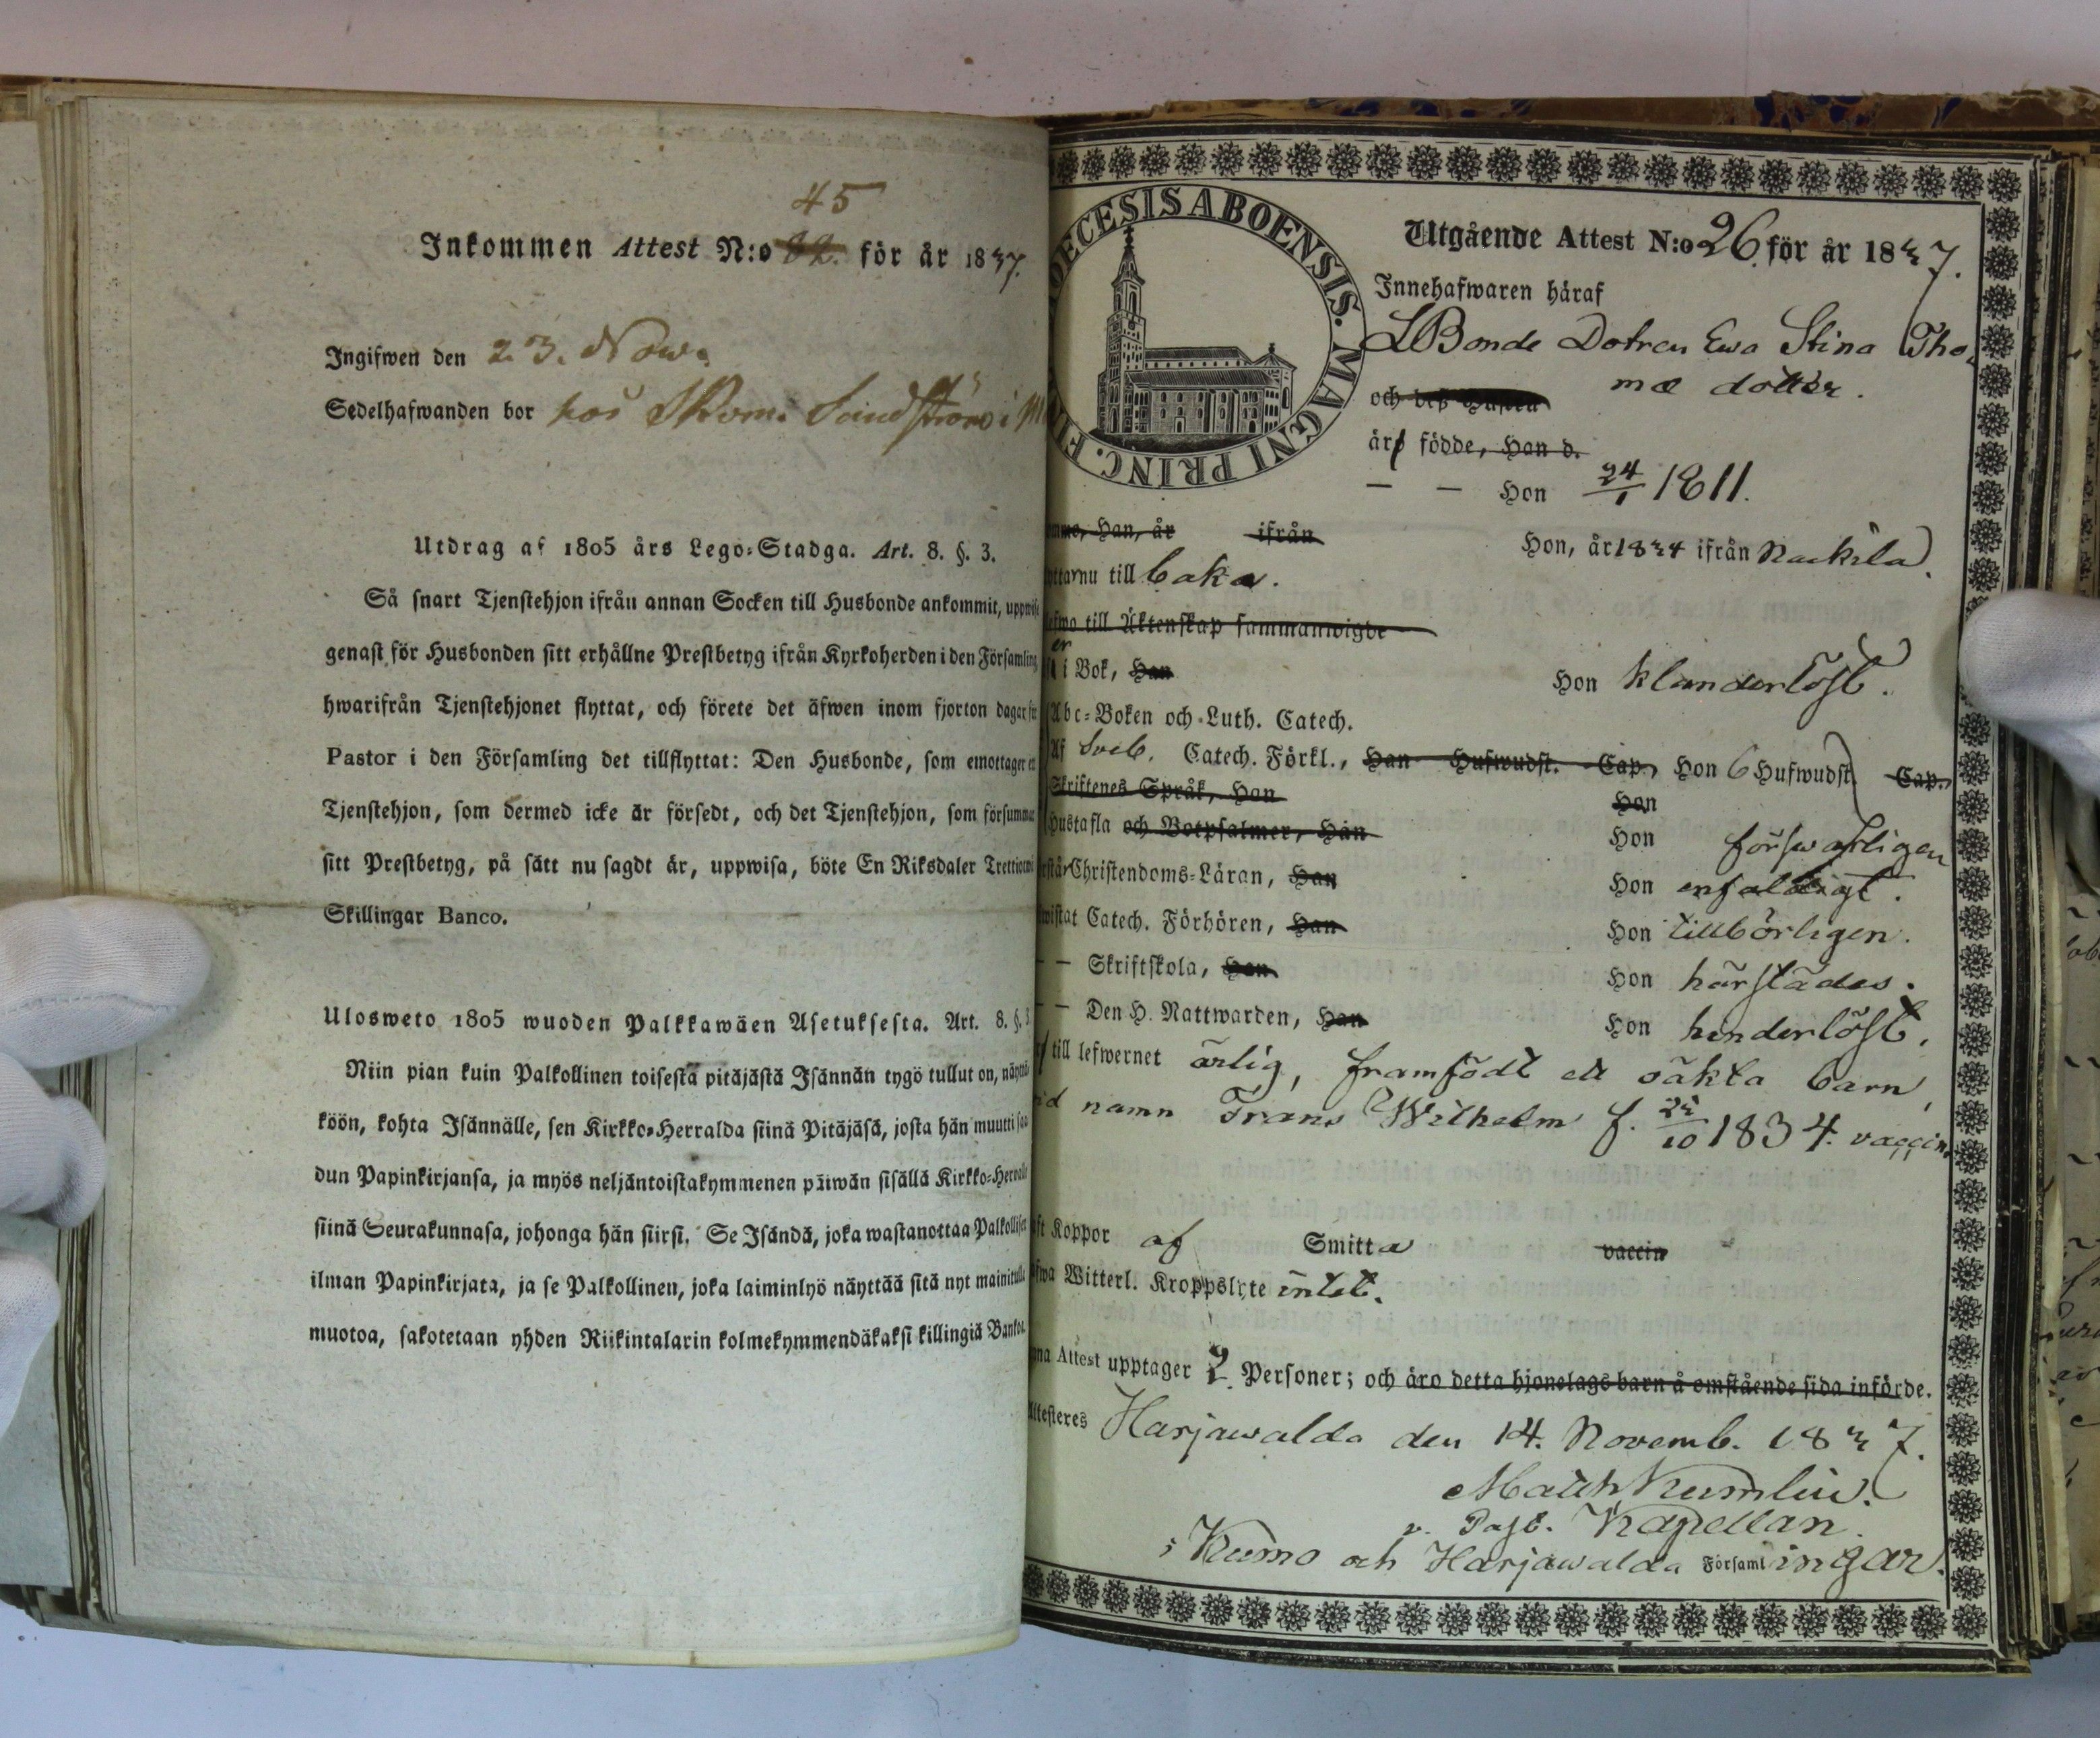 45
Inkommen Attest N:o för år 1837.
Ingifwen den 23. Nov.
Sedelhafwanden bor hos Sandström i
Utdrag af 1805 års Lego-Stadga. Art. 8. §. 3.
Så snart Tjenstehjon ifrån annan Socken till Husbonde ankommit, uppwise
genast för Husbonden sitt erhållne Prestbetyg ifrån Kyrkoherden i den Församling
hwarifrån Tjenstehjonet flyttat, och förete det äfwen inom fjorton dagar för
Pastor i den Församling det tillflyttat: Den Husbonde, som emottager ett
Tjenstehjon, som dermed icke är försedt, och det Tjenstehjon, som försummar
sitt Prestbetyg, på sätt nu sagdt är, uppwisa, böte En Riksdaler Trettiotwå
Skillingar Banco.
Ulosweto 1805 wuoden Palkkawäen Asetuksesta. Art. 8. §. 3
Niin pian kuin Palkollinen toisesta pitäjästä Isännän tygö tullut on, näyttä
köön, kohta Isännälle, sen Kirkko-Herralda siinä Pitäjäsä, josta hän muutti saa
dun Papinkirjansa, ja myös neljäntoistakymmenen päiwän sisällä Kirkko-Herralle
siinä Seurakunnasa, johonga hän siirsi. Se Isändä, joka wastanottaa Palkollisen
ilman Papinkirjata, ja se Palkollinen, joka laiminlyö näyttää sitä nyt mainitulla
muotoa, sakotetaan yhden Riikintalarin kolmekymmendäkaksi killingiä Bankos.
DIOECESIS ABOENSIS. MAGNI PRINC. FI
Utgående Attest N:o 26 för år 1837.
Innehafwaren häraf
LBonde Dotren Ewa Stina Tho-
och deß Hustru mæ dotter.
äro födde, Han d.
— — Hon 24/1 1811.
mmo, Han, år ifrån Hon, år 1834 ifrån Nackila
yttar nu till baka.
efwa till Äktenskap sammanwigde
er i Bok, Han Hon klanderlöst.
Abc-Boken och Luth. Catech.
Af Sveb. Catech. Förkl., Han Hufwudst. Cap., Hon 6 Hufwudst. Cap.
Skriftenes Språk, Han Hon
Hustafla och Botpsalmer, Han Hon försvarligen
rstår Christendoms-Läran, Han Hon enfaldigt.
wistat Catech. Förhören, Han Hon tillbörligen.
— — Skriftskola, Han Hon härstädes.
— — Den H. Nattwarden, Han Hon hinderlöst.
till lefwernet ärlig, framfödt ett oäkta barn,
vid namn Frans Wilhelm f. 1834. vaccin.
ft Koppor af Smitta vaccin
fwa Witterl. Kroppslyte intet.
nna Attest upptager 2 Personer; och äro detta hjonelags barn å omstående sida införde.
Attesteres Harjawalda den 14. Novemb. 1837.
Matth Kumlin.
v. Past. Kapellan.
i Kumo och Harjawalda Församlingar.